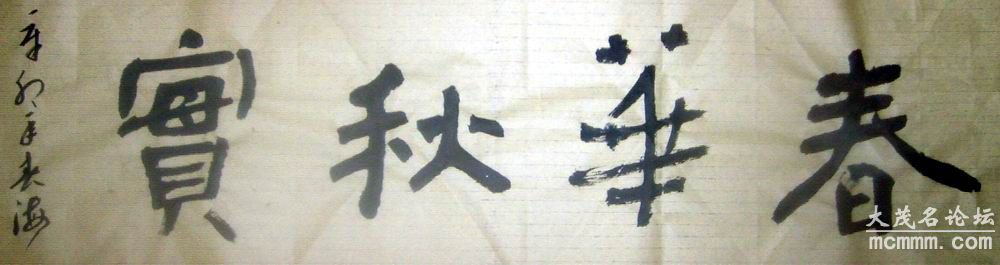 春華秋實
辛卯年春海
大茂名论坛
mcmmm.com